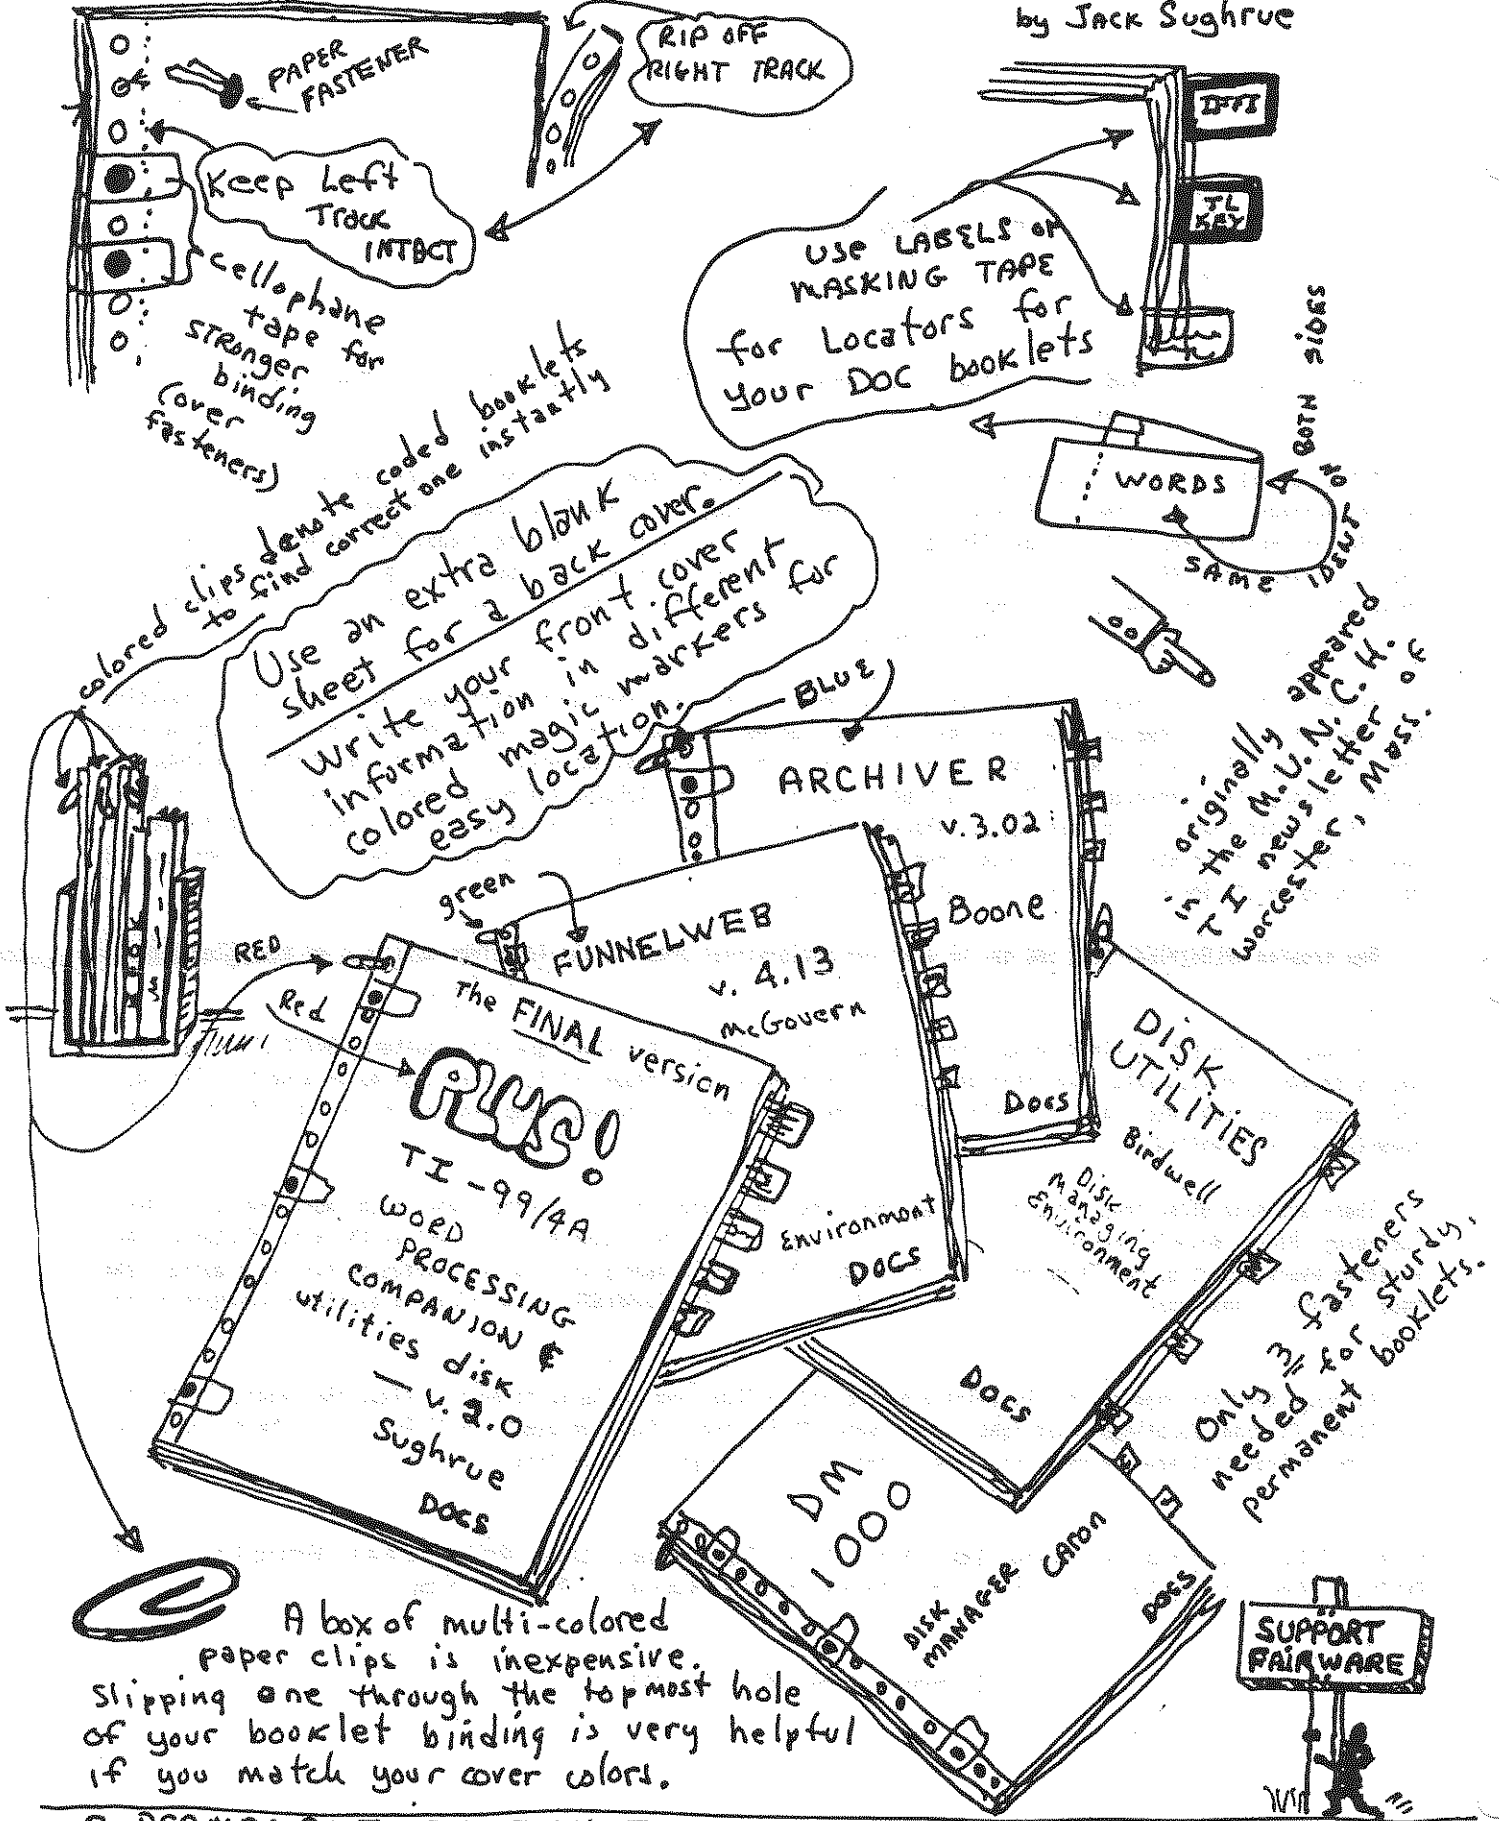 by JACK Sughrue
PAPER
FASTENER
RIP OFF
RIGHT TRACK
Keep Left
Track
INTACT
cellophane
tape for
STRonger
binding
(cover
fasteners)
USE LABELS or
MASKING TAPE
for Locators for
your DOC booklets
TL
KEY
WORDS
BOTH SIDES
NO
IDENT
SAME
colored clips denote coded booklets
to find correct one instantly
Use an extra blank
sheet for a back cover.
Write your front cover
information in different
colored magic markers for
easy location.
originally appeared
in the M.U.N.C.H.
TI newsletter of
Worcester, Mass.
BLUE
ARCHIVER
v.3.02
Boone
Docs
green
FUNNELWEB
v. 4.13
McGovern
Environment
DOCS
RED
Red
The FINAL version
PLUS!
TI-99/4A
WORD
PROCESSING
COMPANION &
utilities disk
— v. 2.0
Sughrue
DOCS
DISK
UTILITIES
Birdwell
Disk
Managing
Environment
DOCS
Only 3 fasteners
needed for sturdy,
permanent booklets.
DM
1000
DISK
MANAGER CARON
DOCS
A box of multi-colored
paper clips is inexpensive.
Slipping one through the topmost hole
of your booklet binding is very helpful
if you match your cover colors.
SUPPORT
FAIRWARE